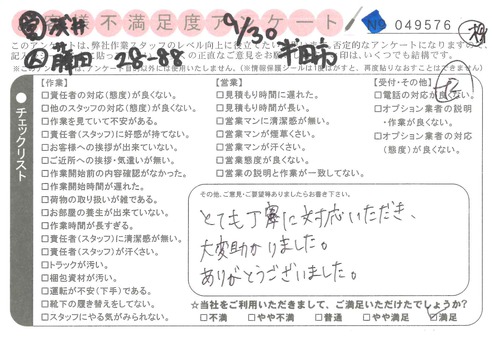 浅井
藤田 28-88
9/30
半田市
お客様不満足度アンケート
NO 049576
このアンケートは、弊社作業スタッフのレベル向上に役立てたい
チェックリスト
【作業】
□責任者の対応(態度)が良くない。
□他のスタッフの対応(態度)が良くない。
□作業を見ていて不安がある。
□責任者(スタッフ)に好感が持てない。
□お客様への挨拶が出来ていない。
□ご近所への挨拶・気遣いが無い。
□作業開始前の内容確認がなかった。
□作業開始時間が遅れた。
□荷物の取り扱いが雑である。
□お部屋の養生が出来ていない。
□作業時間が長すぎる。
□責任者(スタッフ)に清潔感が無い。
□責任者(スタッフ)が汗くさい。
□トラックが汚い。
□梱包資材が汚い。
□運転が不安(下手)である。
□靴下の履き替えをしてない。
□スタッフにやる気がみられない。
【営業】
□見積もり時間に遅れた。
□見積もり時間が長い。
□営業マンに清潔感が無い。
□営業マンが煙草くさい。
□営業マンが汗くさい。
□営業態度が良くない。
□営業の説明と作業が一致してない。
【受付・その他】
□電話の対応が良くない。
□オプション業者の説明・作業が良くない。
□オプション業者の対応(態度)が良くない。
その他、ご意見・ご要望等ありましたらお書き下さい。
とても丁寧に対応いただき、
大変助かりました。
ありがとうございました。
☆当社をご利用いただきまして、ご満足いただけたでしょうか?
□不満 □やや不満 □普通 □やや満足 □満足